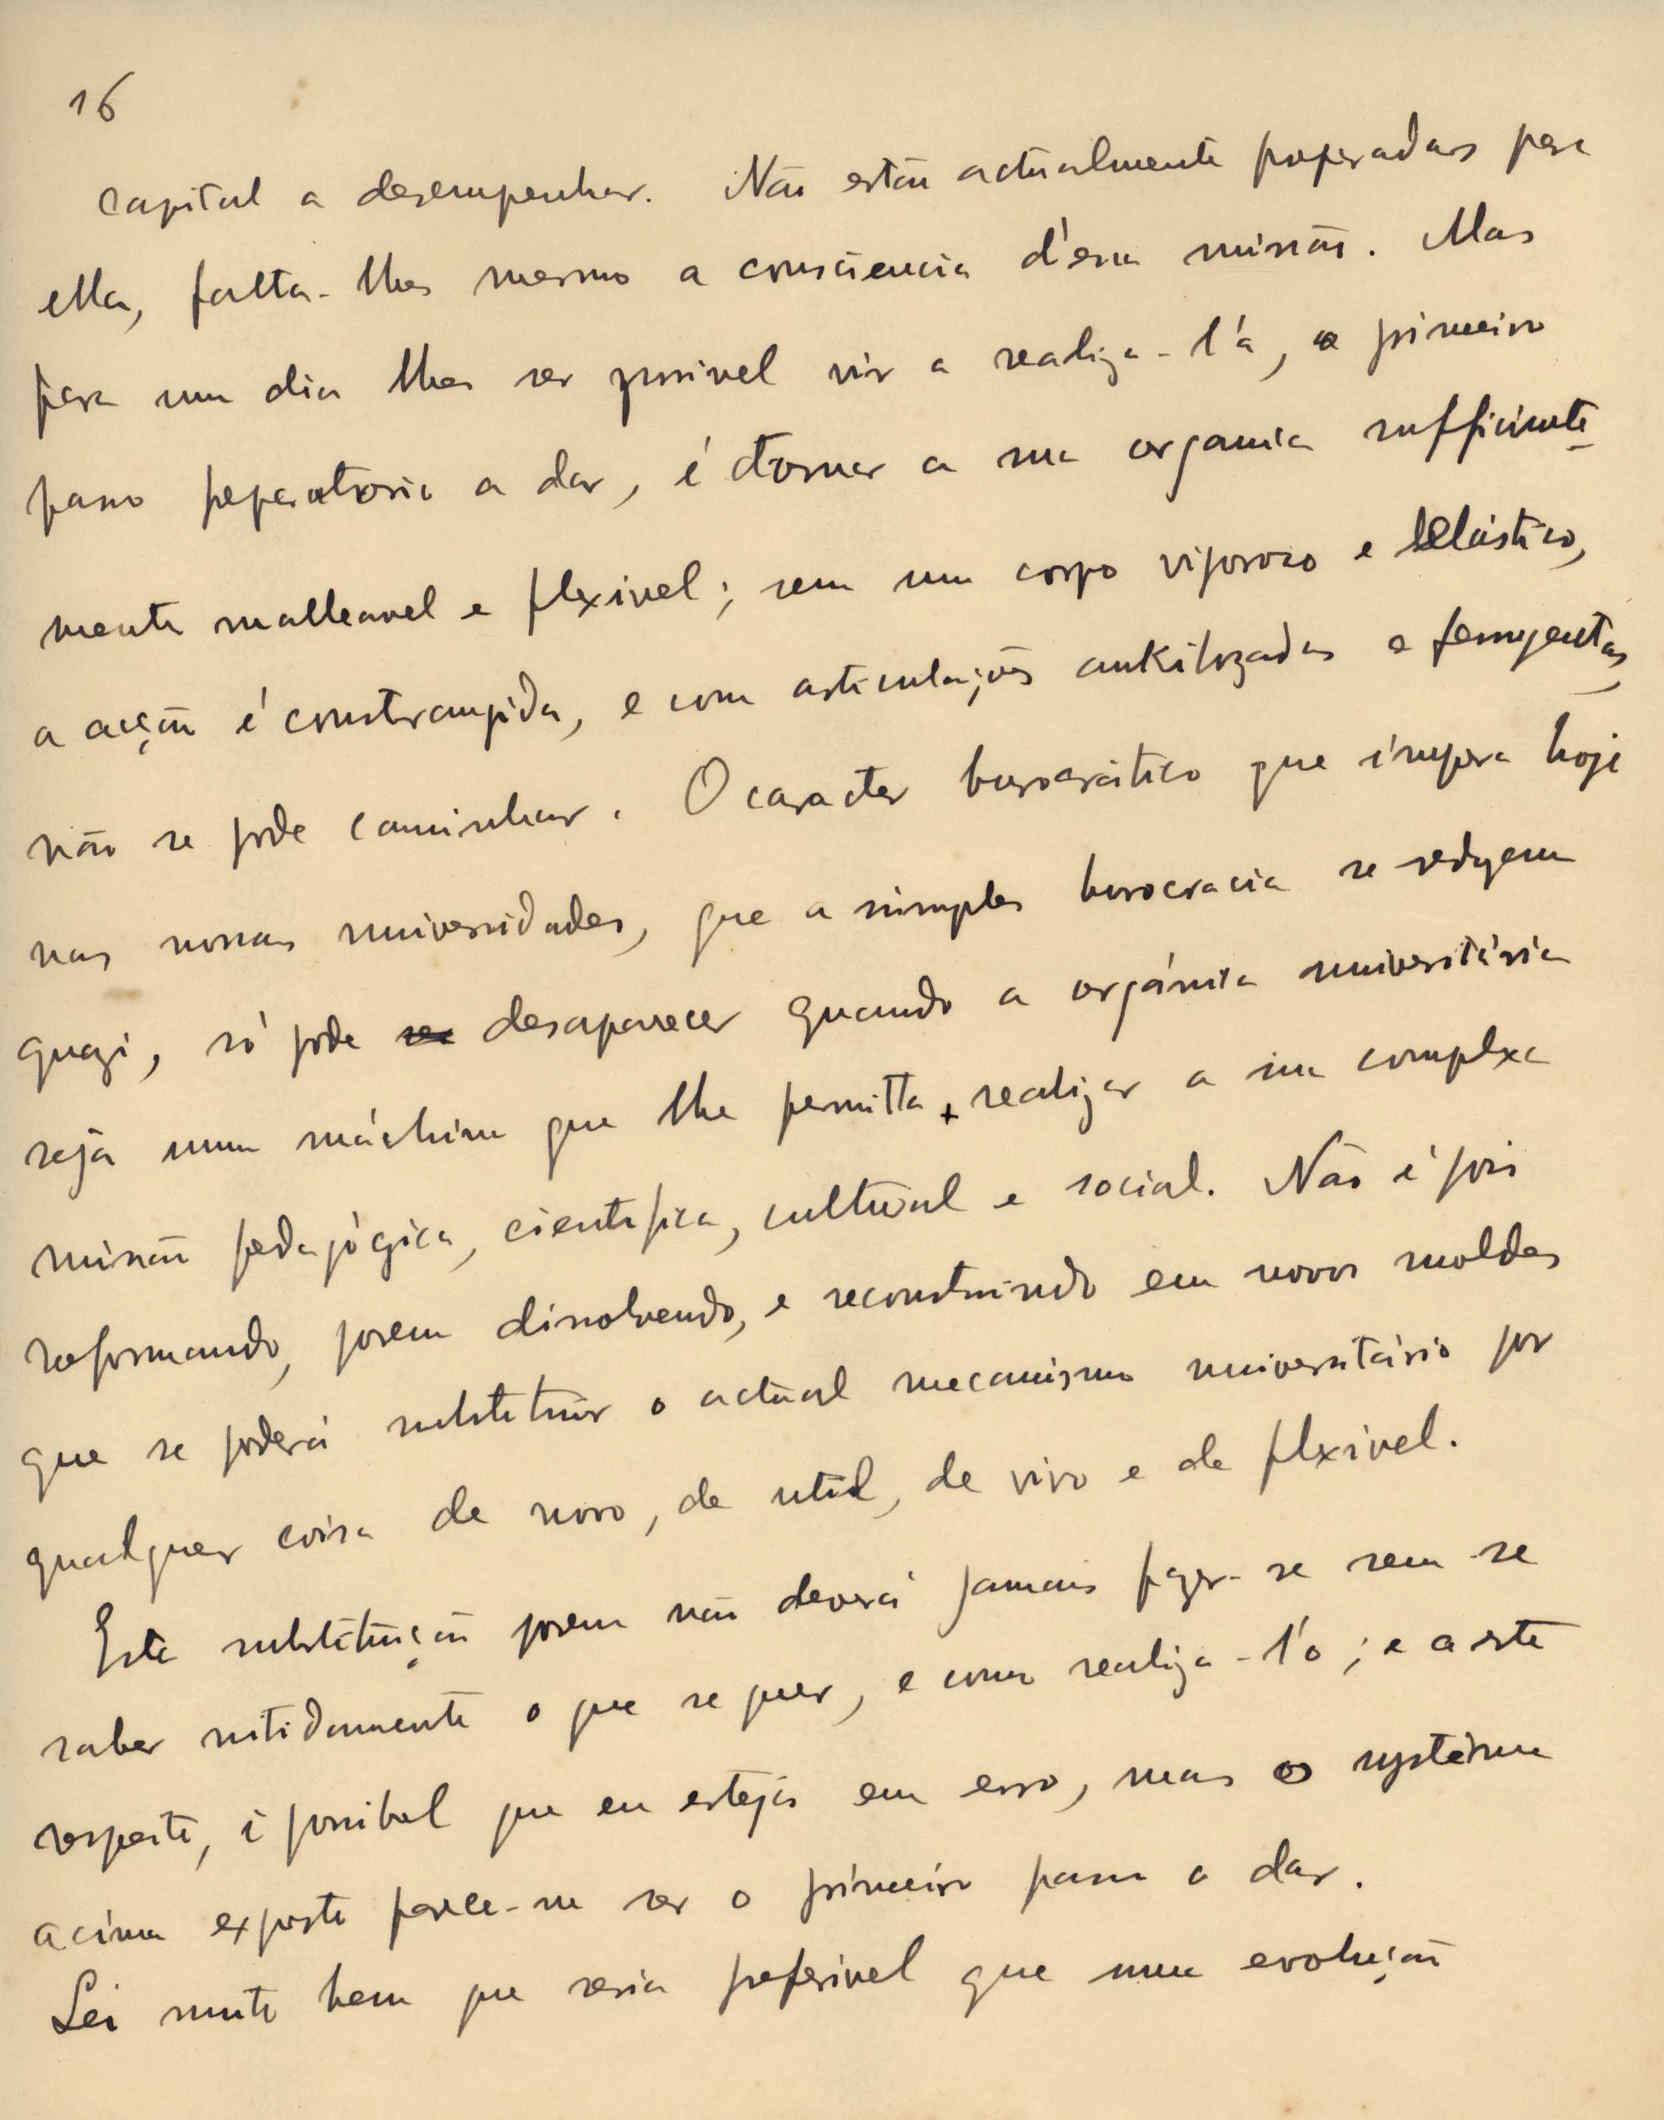 16
capital a desempenhar. Não estão actualmente preparadas para
ella, falta-lhes mesmo a consciencia d'essa missão. Mas
para um dia lhes ser possivel vir a realiza-l'a, o primeiro
passo preparatorio a dar, é tornar a sua organica sufficiente-
mente malleavel e flexivel; sem um corpo vigorozo e elástico,
a acção é constrangida, e com articulações ankilozadas e ferrugentas,
não se pode caminhar. O caracter burocrático que impera hoje
nas nossas universidades, que a simples burocracia se reduzem
quazi, só pode desaparecer quando a orgánica universitária
seja uma máchina que lhe permitta realizar a sua complexa
missão pedagógica, cientifica, cultural e social. Não é pois
reformando, porem dissolvendo, e reconstruindo em novos moldes
que se poderá substituir o actual mecanismo universitário por
qualquer coisa de novo, de util, de vivo e de flexivel.
Esta substituição porem não deverá jamais fazer-se sem se
saber nitidamente o que se quer, e como realiza-l'o; e a este
respeito, é possibel que eu esteja em erro, mas o systema
acima exposto parece-me ser o primeiro passo a dar.
Sei muito bem que seria preferivel que uma evolução